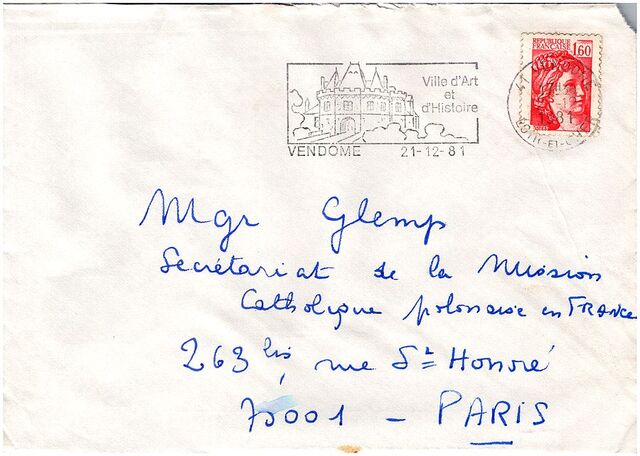 RÉPUBLIQUE
FRANÇAISE
1,60
Ville d'Art
et
d'Histoire
VENDÔME 21-12-81
1981
LOIR-ET-CHER
Mgr Glemp
Secrétariat de la Mission
Catholique polonaise en FRANCE
263 bis, rue St Honoré
75001 - PARIS